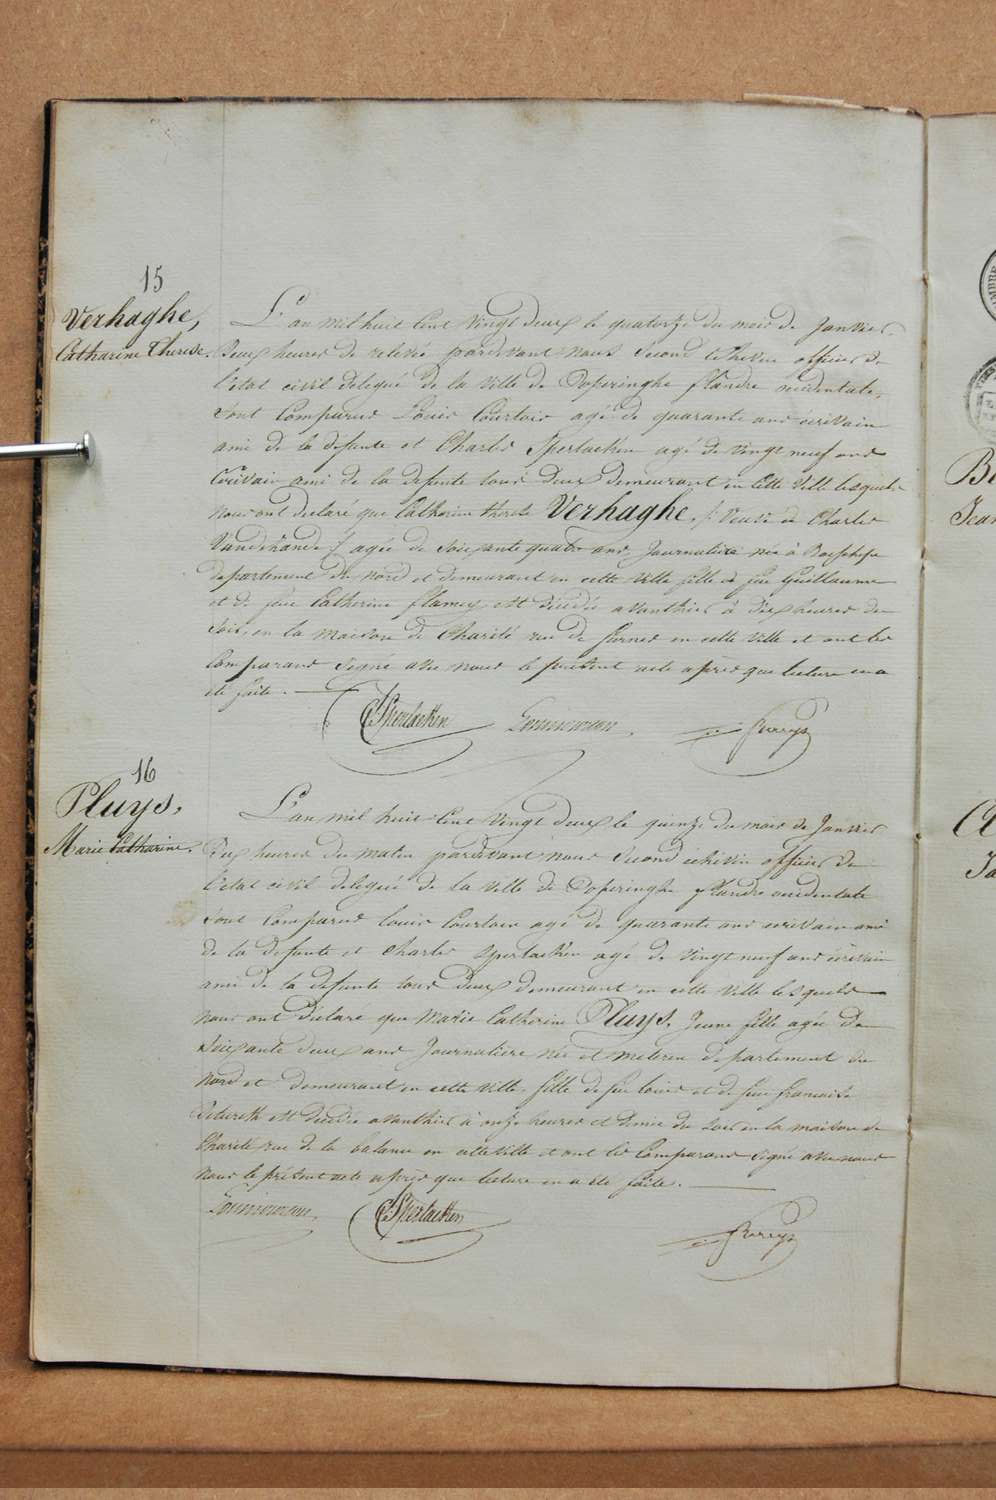 15
Verhaghe,
Catharine Therese.
L'an mil huit Cent Vingt deux le quatorze du mois de Janvier
Deux heures de relevée pardevant nous Second Echevin officier de
l'etat civil delegué de la Ville de Poperinghe flandre occidentale,
sont Comparus Louis Courtois agé de quarante ans ecrivain
ami de la defunte et Charles Sperlaeken agé de vingt neuf ans
Ecrivain ami de la defunte tous deux demeurant en Cette Ville lesquels
nous ont declaré que Catherine therese Verhaghe, Veuve de Charles
Vande agée de Soixante quatre ans, Journaliere née à Boeschepe
departement du Nord et demeurant en cette ville fille de feu Guillaume
et de feue Catherine flamey est décédée avanthier à dix heures du
Soir, en la maison de Charité rue de furnes en cette ville et ont les
Comparans Signé avec nous le présent acte après que lecture en a
été faite.
C. Sperlaeken
16
Pluys,
Marie Catharine.
L'an mil huit Cent Vingt deux le quinze du mois de Janvier
Dix heures du matin pardevant nous Second échevin officier de
l'etat civil delegué de la ville de Poperinghe flandre occidentale
sont Comparus Louis Courtois agé de quarante ans ecrivain ami
de la defunte et Charles Sperlaeken agé de vingt neuf ans écrivain
ami de la defunte tous deux demeurant en cette Ville lesquels
nous ont Declaré que Marie Catherine Pluys, Jeune fille agée De
soixante deux ans Journaliere née et meteren departement du
nord et demeurant en cette ville, fille de feu Louis et de feue francoise
est decedée avanthier à onze heures et demie du soir en la maison de
Charité rue de la balance en cette ville et ont les Comparans Signé avec nous
nous le présent acte après que lecture en a été faite.
C. Sperlaeken